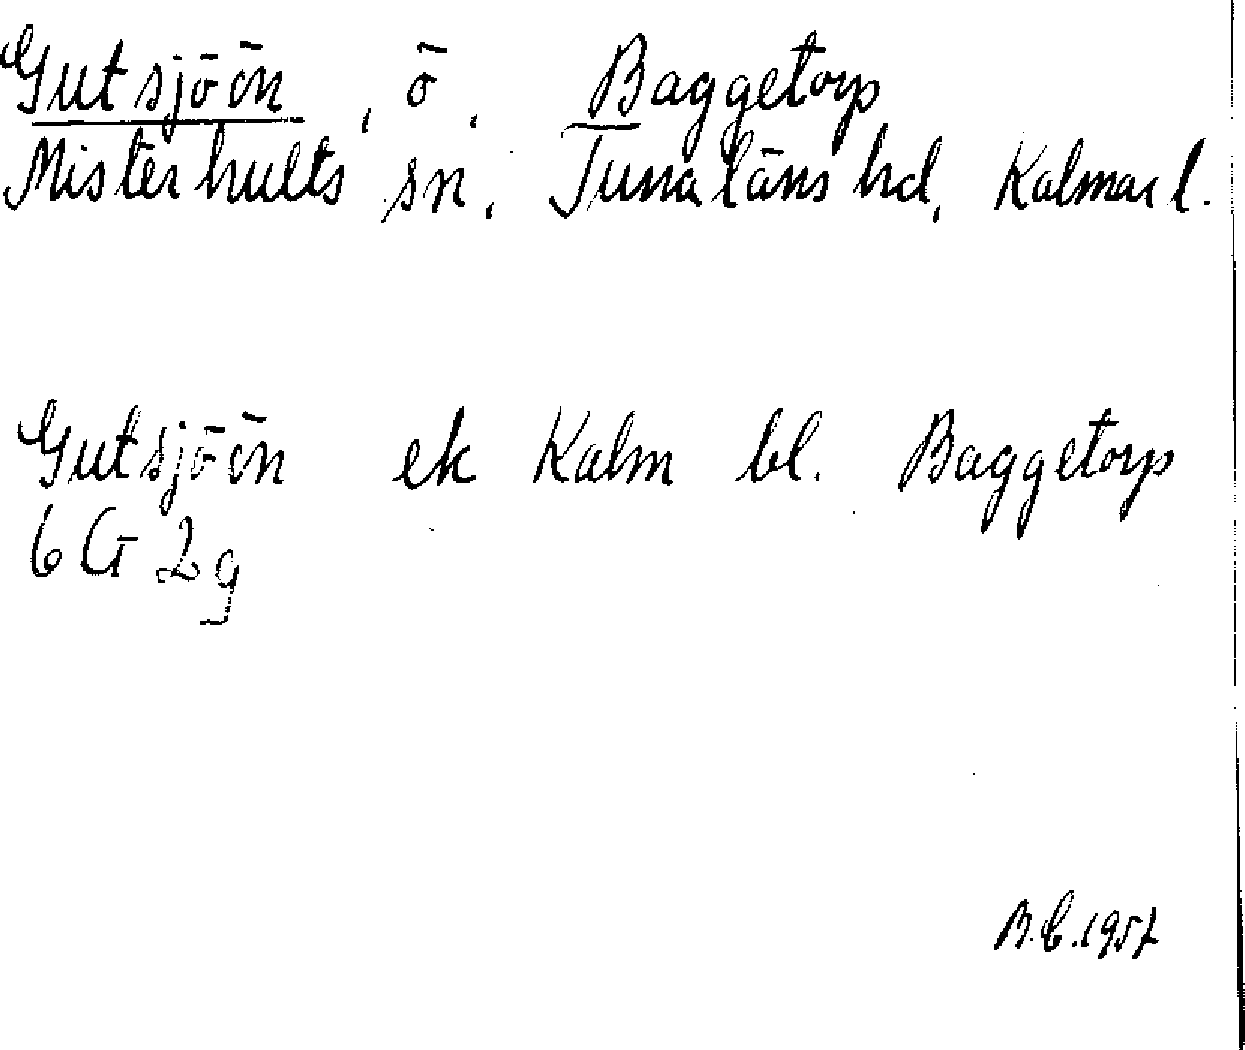 Gutsjöön, ö, Baggetorp
Misterhults sn, Tunaläns hd, Kalmar l.
Gutsjöön ek Kalm bl. Baggetorp
6 G 2g
B.C.1957